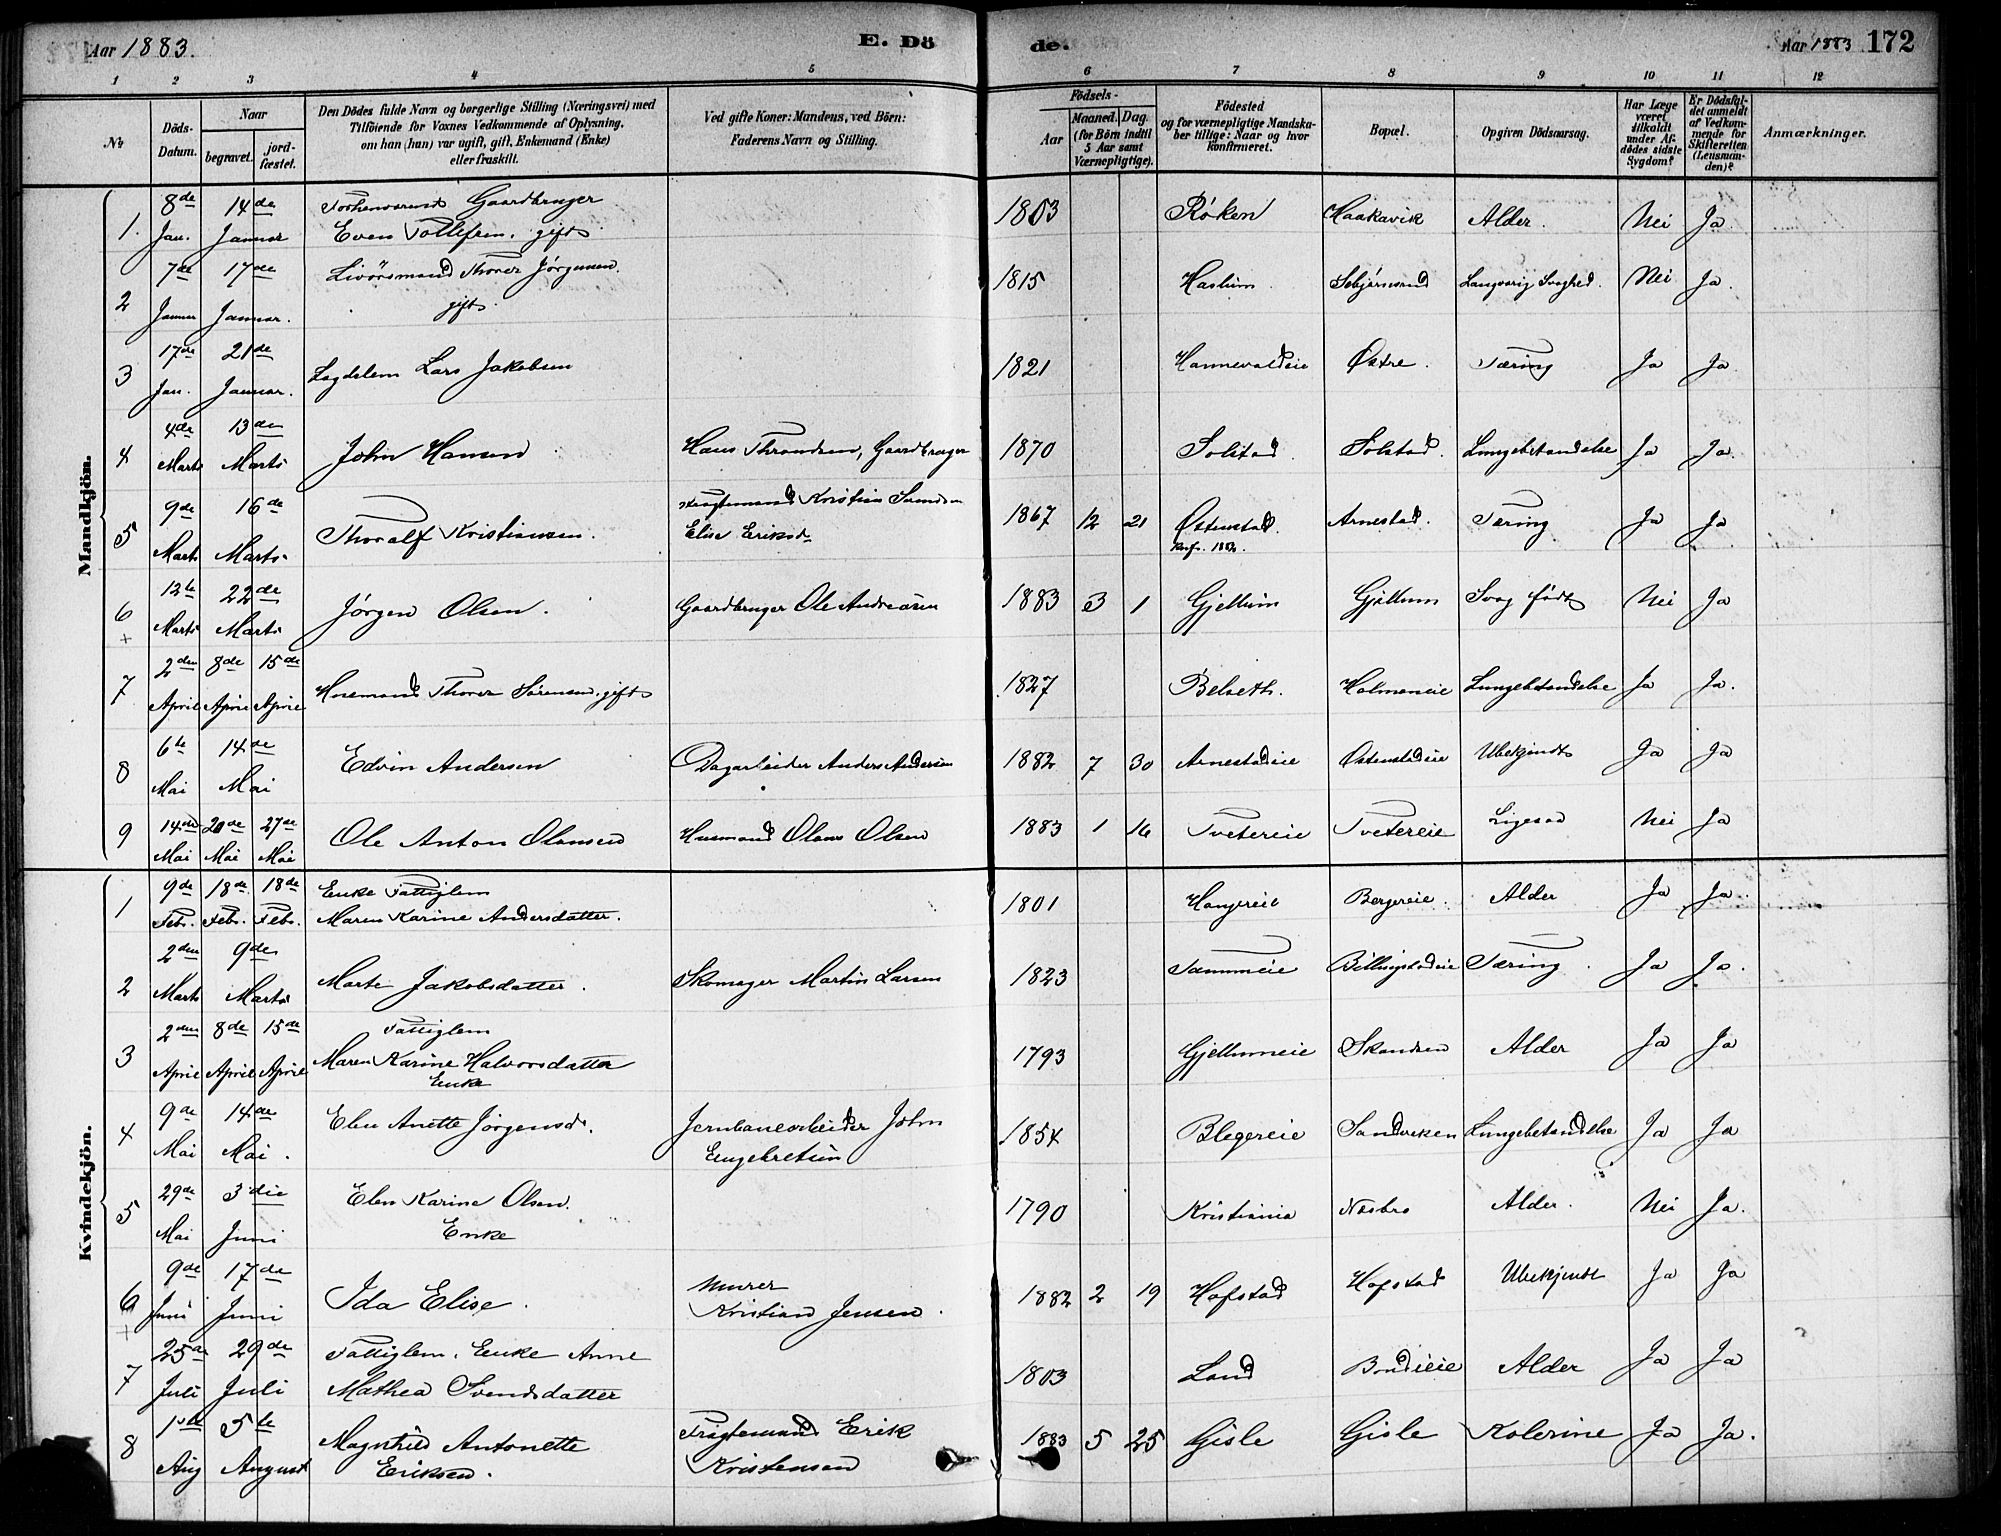 Aar 1883.
E. Dö
de.
Aar 1883
172
1 2 3 4 5 6 7 8 9 10 11 12
No.
Döds-Datum.
Naar
begravet.
jord-fæstet.
Den Dödes fulde Navn og borgerlige Stilling (Næringsvei) med
Tilföiende for Voxnes Vedkommende af Oplysning,
om han (hun) var ugift, gift, Enkemand (Enke)
eller fraskilt.
Ved gifte Koner: Mandens, ved Börn:
Faderens Navn og Stilling.
Födsels-
Aar
Maaned. Dag.
(for Börn indtil
5 Aar samt
Værnepligtige).
Födested
og for værnepligtige Mandska-
ber tillige: Naar og hvor
konfirmeret.
Bopæl.
Opgiven Dödsaarsag.
Har Læge
været
tilkaldt
under Af-
dödes sidste
Sygdom?
Er Dödsfal-
det anmeldt
af Vedkom-
mende for
Skifteretten
(Lensman-
den)?
Anmærkninger.
Mandkjön.
1. 8de Jan. 14de Januar Gaardbruger
Even Tollefsen. gift 1803 Røken Haakavik Alder. Nei Ja.
2 7de Januar 17de Januar. Thorer Jörgensen.
gift. 1815 Haslum Langvarig Svaghed. Nei Ja.
3 17de Jan. 21de Januar. Lægdslem Lars Jakobsen 1821 Hannevoldeie Østre. Tæring Ja Ja
4 4de Marts 13de Marts John Hansen Hans Throndsen, Gaardbruger 1870 Solstad. Solstad. Lungebetændelse Ja Ja.
5 9de Marts 16de Marts. Thoralf Kristiansen. Fragtemand Kristian
Elise Eriksd. 1867 12 21 Østenstad. Arnestad. Tæring Ja Ja
Konf. 1882.
6 + 12te Marts 22de Marts Jörgen Olsen. Gaardbruger Ole Andreasen 1883 3 1 Gjellum Gjellum Svag født Nei Ja
7 2den April 8de April 15de April Husmand Thorer Sörensen. gift 1827 Belseth. Holmeneie Lungebetændelse Ja Ja.
8 6te Mai 14de Mai Edvin Andersen Dagarbeider Anders Andersen 1882 7 30 Arnestadeie Østenstadeie Ubekjendt Ja Ja
9 14de Mai 20de Mai 27de Mai Ole Anton Olausen Husmand Olaus Olsen 1883 1 16 Tvetereie Tvetereie Nei Ja
Kvindekjön.
1 9de Febr. 18de Febr. 18de Febr. Enke Fattiglem
Maren Karine Andersdatter. 1801 Haugereie Bergereie. Alder Ja Ja
2 2den Marts 9de Marts Marte Jakobsdatter. Skomager Martin Larsen 1823 Tanumeie Billingstadeie Tæring. Ja Ja.
3 2den April 8de April 15de April Fattiglem
Maren Karine Halvorsdatter
Enke 1793 Gjellumeie Skandsen Alder Ja Ja
4 9de Mai 14de Mai. Elen Anette Jörgensd. Jernbanearbeider John
Engebretsen 1854 Blegereie Sandviken Lungebetændelse Ja Ja
5 29de Mai 3die Juni Elen Karine Olsen.
Enke 1790 Kristiania Næsbro Alder. Nei Ja.
6 + 9de Juni 17de Juni Ida Elise. Murer
Kristian Jensen. 1882 2 19 Hofstad Hofstad Ubekjendt Ja Ja
7 25de Juli 29de Juli Fattiglem. Enke Anne
Mathea Svendsdatter 1803 Land Bondieie Alder Ja Ja
8 1ste Aug 5te August Magnhild Antonette
Eriksen. Fragtemand Erik
Kristensen 1883 5 25 Gisle Gisle Kolerine Ja Ja.